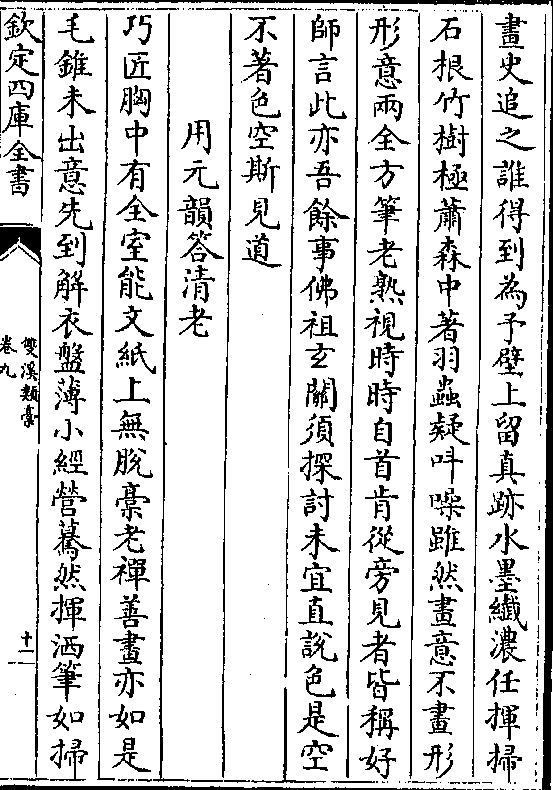 畫史追之誰得到為予壁上留真跡水墨纎濃任揮掃
石根竹樹極蕭森中著羽蟲疑叫噪雖然畫意不畫形
形意兩全方筆老熟視時時自首肯從旁見者皆稱好
師言此亦吾餘事佛祖玄關須探討未宜直說色是空
不著色空斯見道
用元韻答清老
巧匠胸中有全室能文紙上無脫稾老禪善畫亦如是
毛錐未出意先到解衣盤薄小經營驀然揮洒筆如掃
欽定四庫全書
雙溪類稾
卷九
十二